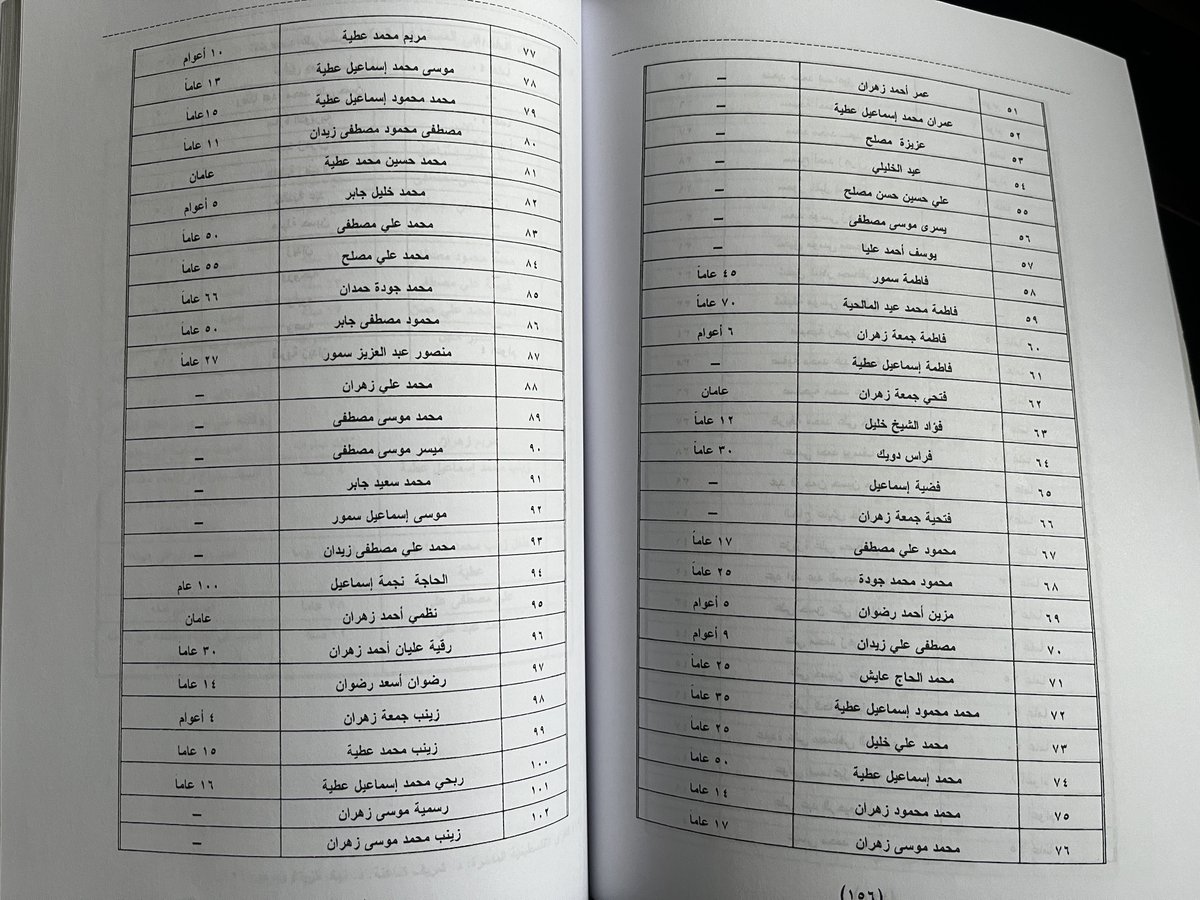 ٥١ عمر أحمد زهران –
٥٢ عمران محمد إسماعيل عطية –
٥٣ عزيزة مصلح –
٥٤ عيد الخليلي –
٥٥ علي حسين حسن مصلح –
٥٦ يسرى موسى مصطفى –
٥٧ يوسف أحمد عليا –
٥٨ فاطمة سمور ٤٥ عاماً
٥٩ فاطمة محمد عيد المالحية ٧٠ عاماً
٦٠ فاطمة جمعة زهران ٦ أعوام
٦١ فاطمة إسماعيل عطية –
٦٢ فتحي جمعة زهران عامان
٦٣ فؤاد الشيخ خليل ١٢ عاماً
٦٤ فراس دويك ٣٠ عاماً
٦٥ فضية إسماعيل –
٦٦ فتحية جمعة زهران –
٦٧ محمود علي مصطفى ١٧ عاماً
٦٨ محمود محمد جودة ٢٥ عاماً
٦٩ مزين أحمد رضوان ٥ أعوام
٧٠ مصطفى علي زيدان ٩ أعوام
٧١ محمد الحاج عايش ٢٥ عاماً
٧٢ محمد محمود إسماعيل عطية ٣٥ عاماً
٧٣ محمد علي خليل ٢٥ عاماً
٧٤ محمد إسماعيل عطية ٥٠ عاماً
٧٥ محمد محمود زهران ١٤ عاماً
٧٦ محمد موسى زهران ١٧ عاماً
(١٥٦)
٧٧ مريم محمد عطية ١٠ أعوام
٧٨ موسى محمد إسماعيل عطية ١٣ عاماً
٧٩ محمد محمود إسماعيل عطية ١٥عاماً
٨٠ مصطفى محمود مصطفى زيدان ١١ عاماً
٨١ محمد حسين محمد عطية عامان
٨٢ محمد خليل جابر ٥ أعوام
٨٣ محمد علي مصطفى ٥٠ عاماً
٨٤ محمد علي مصلح ٥٥ عاماً
٨٥ محمد جودة حمدان ٦٦ عاماً
٨٦ محمود مصطفى جابر ٥٠ عاماً
٨٧ منصور عبد العزيز سمور ٢٧ عاماً
٨٨ محمد علي زهران –
٨٩ محمد موسى مصطفى –
٩٠ ميسر موسى مصطفى –
٩١ محمد سعيد جابر –
٩٢ موسى إسماعيل سمور –
٩٣ محمد علي مصطفى زيدان –
٩٤ الحاجة نجمة إسماعيل ١٠٠ عام
٩٥ نظمي أحمد زهران عامان
٩٦ رقية عليان أحمد زهران ٣٠ عاماً
٩٧ رضوان أسعد رضوان ١٤ عاماً
٩٨ زينب جمعة زهران ٤ أعوام
٩٩ زينب محمد عطية ١٥ عاماً
١٠٠ ربحي محمد إسماعيل عطية ١٦ عاماً
١٠١ رسمية موسى زهران –
١٠٢ زينب محمد موسى زهران –